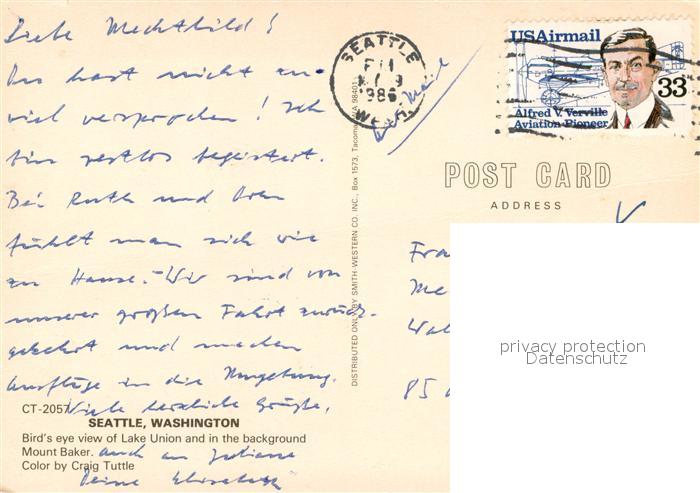 Liebe Mechthild!
Du hast nicht zu
viel versprochen! Ich
bin restlos begeistert.
Bei Ruth und
fühlt man sich wie
zu Hause. Wir sind von
unserer großen Fahrt zurück-
gekehrt und machen
Ausflüge in die Umgebung.
Viele herzliche Grüße,
auch an Juliane
Deine Elisabeth
CT-2057
SEATTLE, WASHINGTON
Bird's eye view of Lake Union and in the background
Mount Baker.
Color by Craig Tuttle
DISTRIBUTED ONLY BY SMITH-WESTERN CO. INC., Box 1573, Tacoma, WA 98401
SEATTLE
1986
Air Mail
USAirmail
33
Alfred V. Verville
Aviation Pioneer
POST CARD
ADDRESS
Fra
Me
Wal
85
privacy protection
Datenschutz